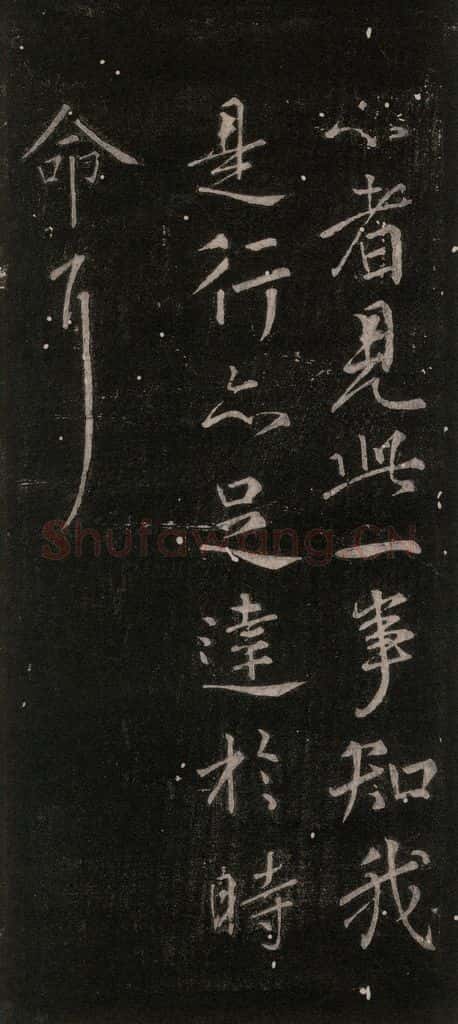 心者見此一事知我
是行亦足達於時
命耳
Shufawang.CN